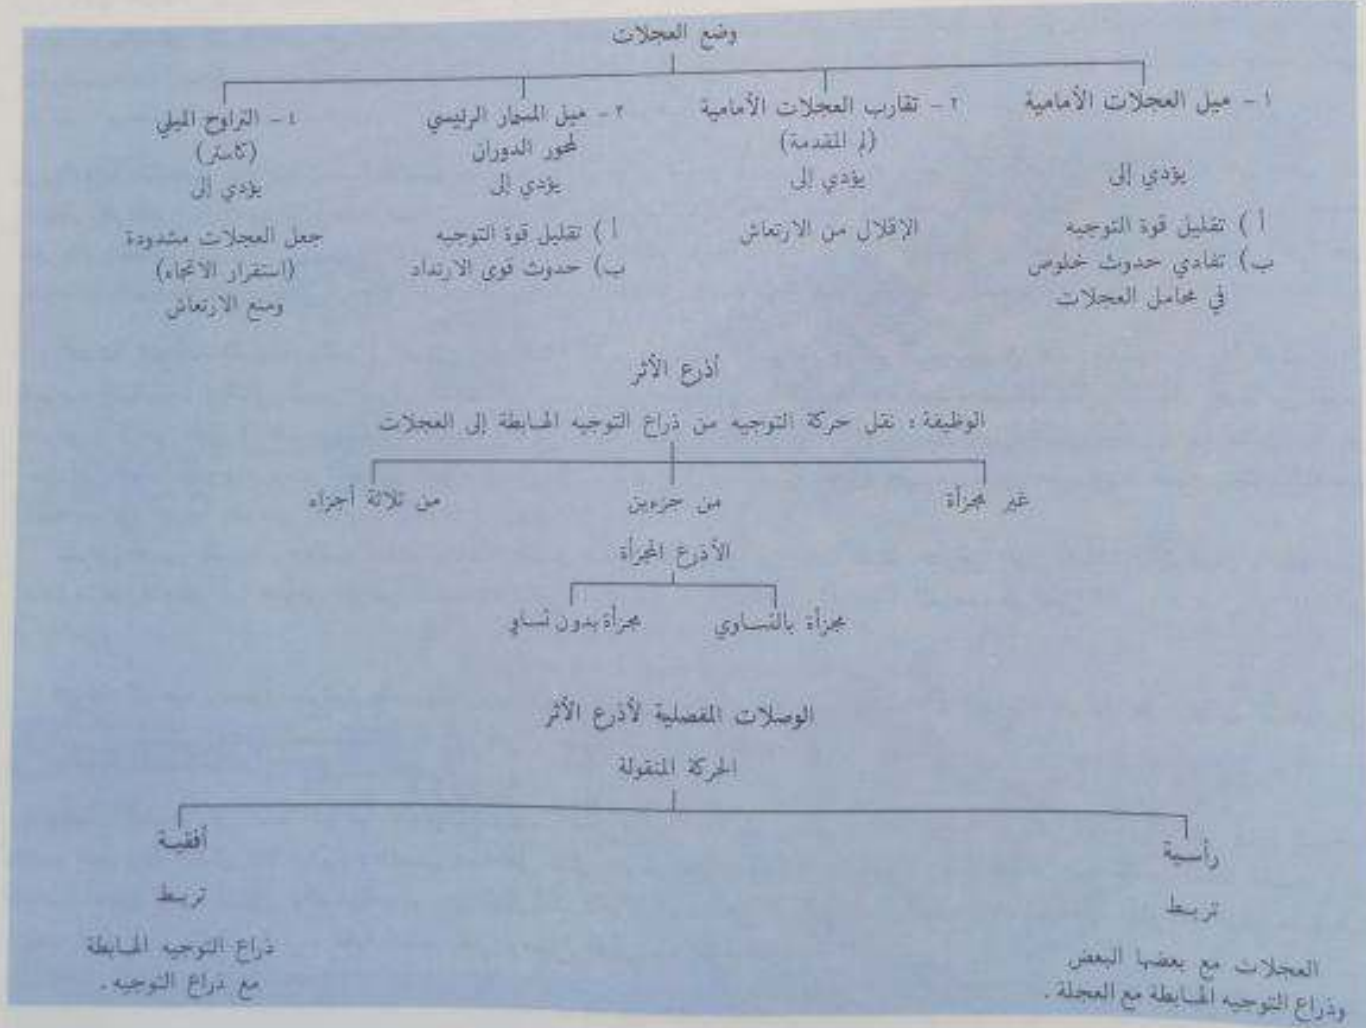 وضع العجلات
١ - ميل العجلات الأمامية
يؤدي إلى
أ ) تقليل قوة التوجيه
ب) تفادي حدوث خلوص
في محامل العجلات
٢ - تقارب العجلات الأمامية
(لم المقدمة)
يؤدي إلى
الإقلال من الارتعاش
٣ - ميل المسمار الرئيسي
لمحور الدوران
يؤدي إلى
أ ) تقليل قوة التوجيه
ب) حدوث قوى الارتداد
٤ - التراوح الميلي
(كاستر)
يؤدي إلى
جعل العجلات مشدودة
(استقرار الاتجاه)
ومنع الارتعاش
أذرع الأثر
الوظيفة : نقل حركة التوجيه من ذراع التوجيه الهابطة إلى العجلات
غير مجزأة
من جزءين
من ثلاثة أجزاء
الأذرع المجزأة
مجزأة بالتساوي
مجزأة بدون تساو
الوصلات المفصلية لأذرع الأثر
الحركة المنقولة
رأسية
تربط
العجلات مع بعضها البعض
وذراع التوجيه الهابطة مع العجلة .
أفقية
تربط
ذراع التوجيه الهابطة
مع ذراع التوجيه .